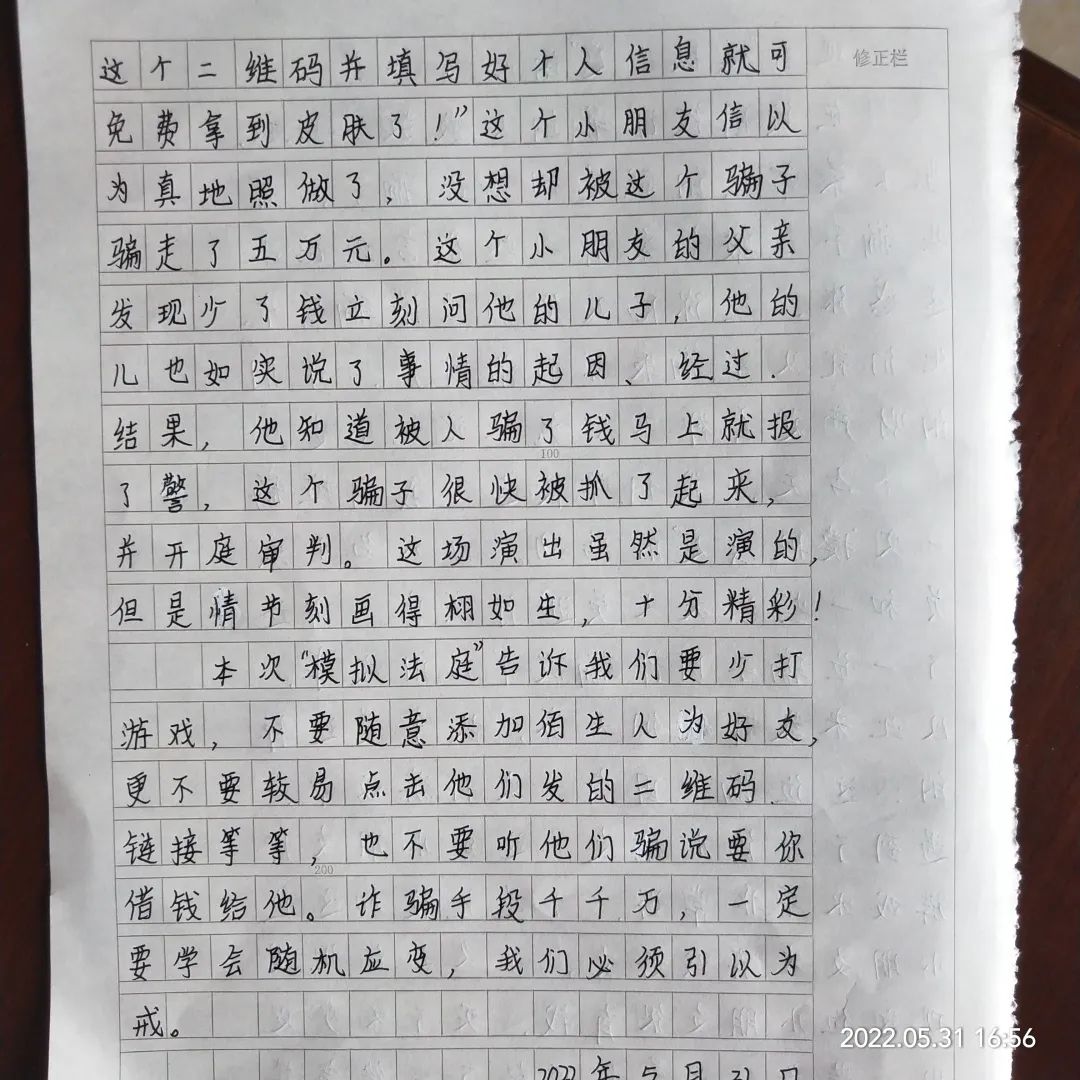 修正栏
这个二维码并填写好个人信息就可
免费拿到皮肤了！”这个小朋友信以
为真地照做了，没想却被这个骗子
骗走了五万元。这个小朋友的父亲
发现少了钱立刻问他的儿子，他的
儿也如实说了事情的起因、经过、
结果，他知道被人骗了钱马上就报
100
了警，这个骗子很快被抓了起来，
并开庭审判。这场演出虽然是演的，
但是情节刻画得栩如生，十分精彩！
本次“模拟法庭”告诉我们要少打
游戏，不要随意添加佰生人为好友，
更不要较易点击他们发的二维码、
链接等等，也不要听他们骗说要你
200
借钱给他。诈骗手段千千万，一定
要学会随机应变，我们必须引以为
戒。
2022年5月31日
2022.05.31 16:56